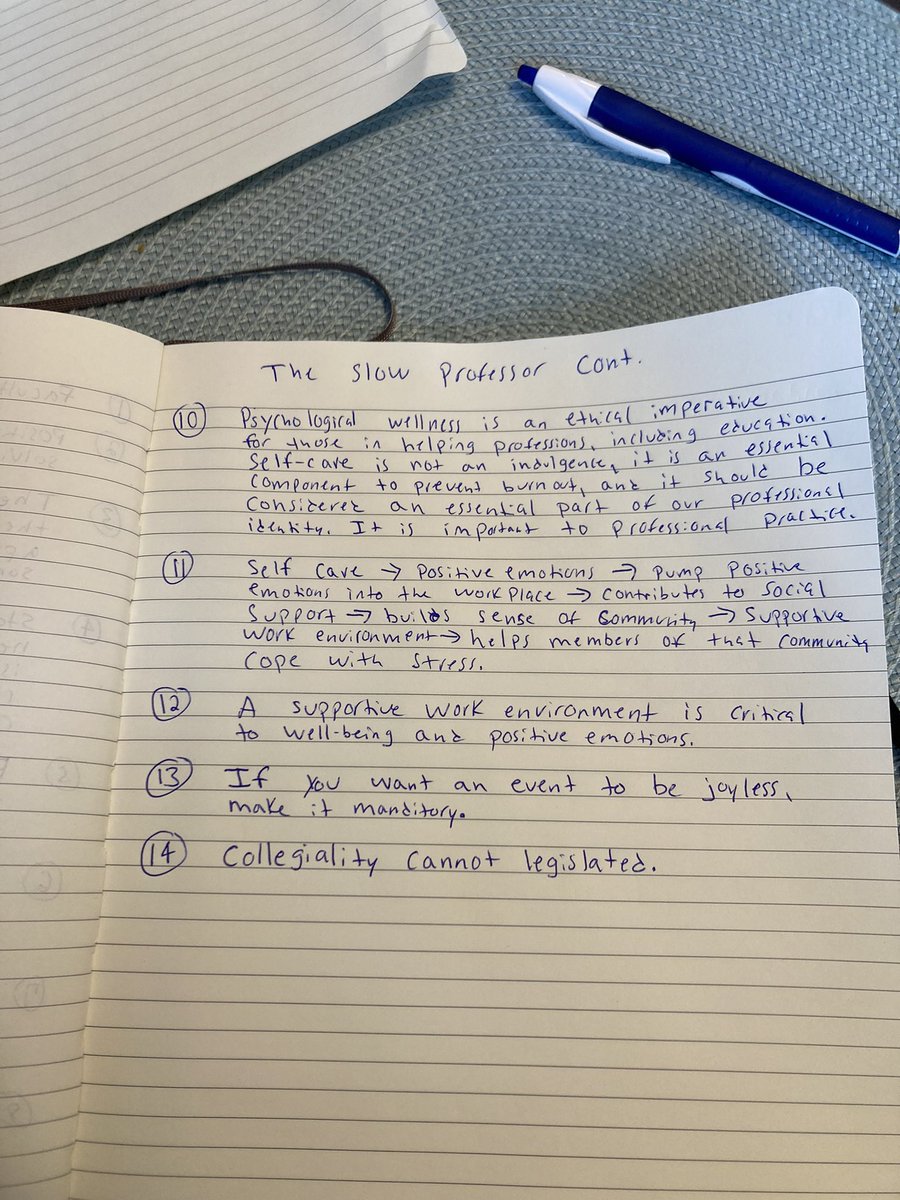 The Slow Professor Cont.
10 Psychological wellness is an ethical imperative
for those in helping professions, including education.
Self-care is not an indulgence, it is an essential
component to prevent burnout, and it should be
considered an essential part of our professional
identity. It is important to professional practice.
11 Self care → positive emotions → pump positive
emotions into the workplace → contributes to social
support → builds sense of community → supportive
work environment → helps members of that community
cope with stress.
12 A supportive work environment is critical
to well-being and positive emotions.
13 If you want an event to be joyless,
make it manditory.
14 Collegiality cannot legislated.